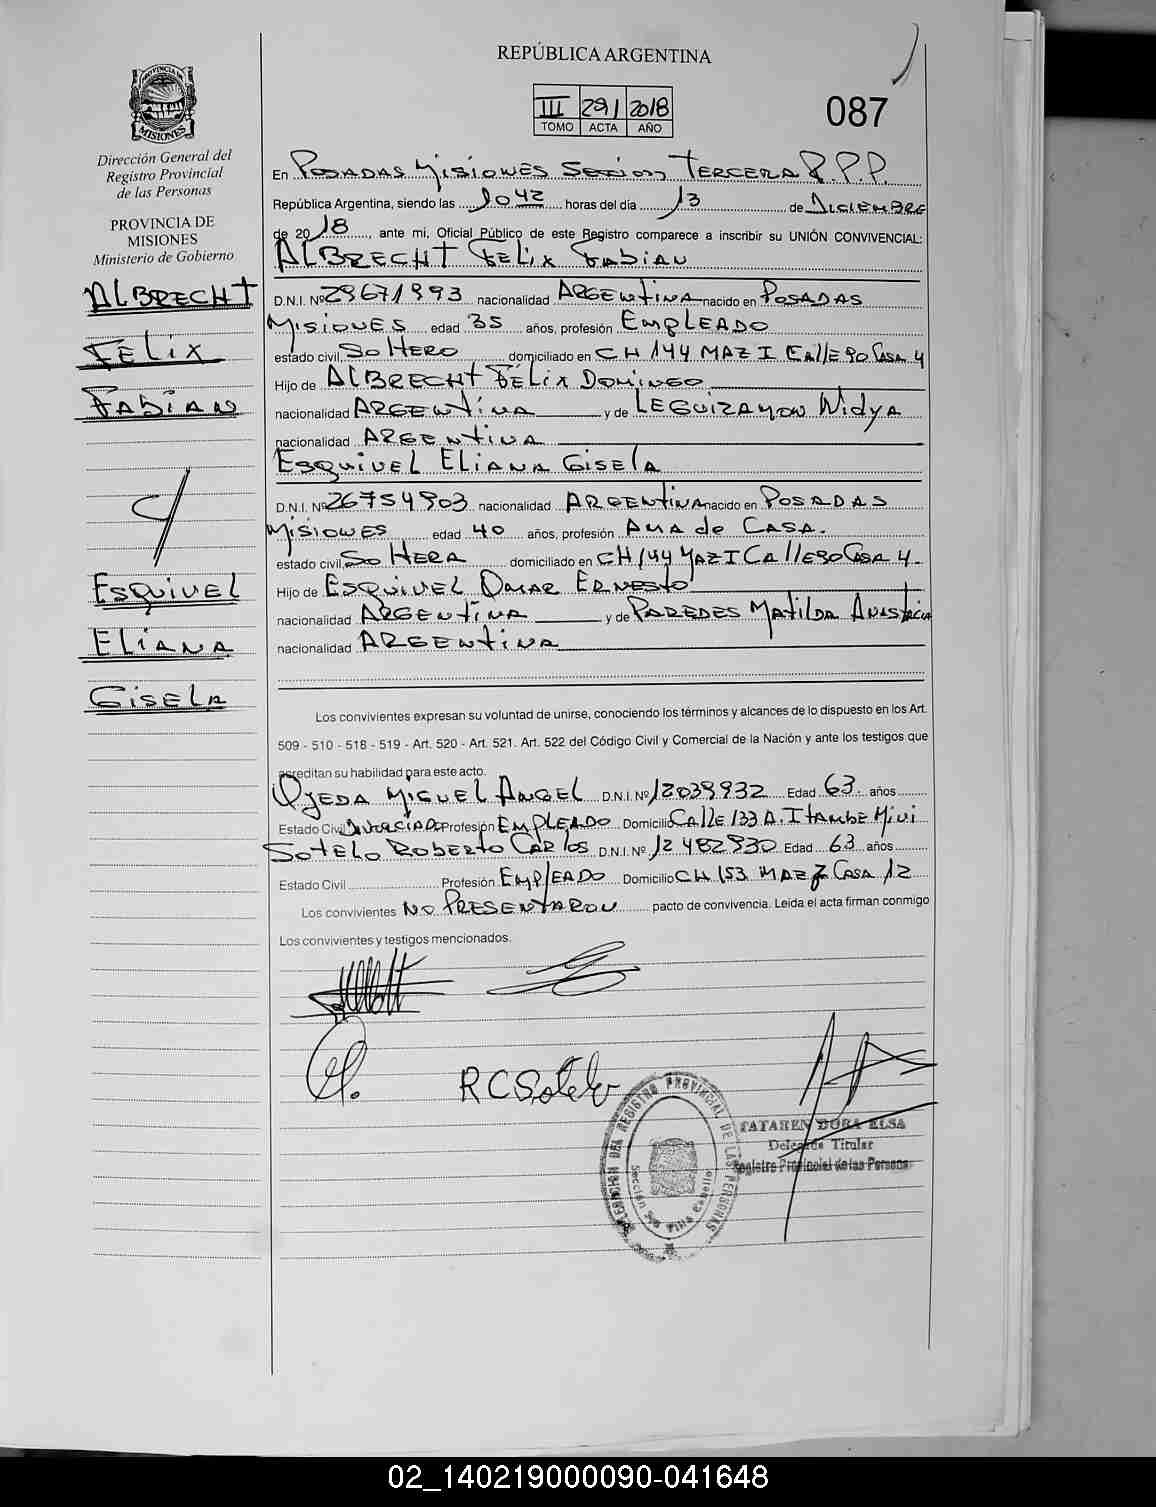 REPÚBLICA ARGENTINA
III 291 2018
TOMO ACTA AÑO
087
PROVINCIA DE
MISIONES
Dirección General del
Registro Provincial
de las Personas
PROVINCIA DE
MISIONES
Ministerio de Gobierno
ALBRECHT
FELIX
FABIAN
Y
ESQUIVEL
ELIANA
GISELA
En POSADAS MISIONES SECCION TERCERA R.P.P.
República Argentina, siendo las 1042 horas del día 13 de DICIEMBRE
de 2018, ante mi, Oficial Público de este Registro comparece a inscribir su UNIÓN CONVIVENCIAL:
ALBRECHT FELIX FABIAN
D.N.I. Nº 29671993 nacionalidad ARGENTINA nacido en POSADAS
MISIONES edad 35 años, profesión EMPLEADO
estado civil, SOLTERO domiciliado en CH 144 MAZ I CALLE 90 CASA 4
Hijo de ALBRECHT FÉLIX DOMINGO
nacionalidad ARGENTINA y de LEGUIZAMON Nidya
nacionalidad ARGENTINA
ESQUIVEL ELIANA GISELA
D.N.I. Nº 26754903 nacionalidad ARGENTINA nacido en POSADAS
MISIONES edad 40 años, profesión AMA de CASA.
estado civil, SOLTERA domiciliado en CH 144 MAZ I CALLE 90 CASA 4.
Hijo de ESQUIVEL OMAR ERNESTO
nacionalidad ARGENTINA y de PAREDES MATILDA ANASTACIA
nacionalidad ARGENTINA
Los convivientes expresan su voluntad de unirse, conociendo los términos y alcances de lo dispuesto en los Art.
509 - 510 - 518 - 519 - Art. 520 - Art. 521. Art. 522 del Código Civil y Comercial de la Nación y ante los testigos que
acreditan su habilidad para este acto.
OJEDA MIGUEL ANGEL D.N.I. Nº 12039932 Edad 63. años
Estado Civil Profesión EMPLEADO Domicilio CALLE 133 A. ITAMBE MINI
SOTELO ROBERTO CARLOS D.N.I. Nº 12482930 Edad 63 años
Estado Civil Profesión EMPLEADO Domicilio CH 153 MAZ 7 CASA 12
Los convivientes NO PRESENTARON pacto de convivencia. Leida el acta firman conmigo
Los convivientes y testigos mencionados.
RCSotelo
DELEGACION DEL REGISTRO PROVINCIAL DE LAS PERSONAS
Sección 3ra Villa Cabello
TATAREN DORA ELSA
Delegada Titular
Registro Provincial de las Personas
02_140219000090-041648